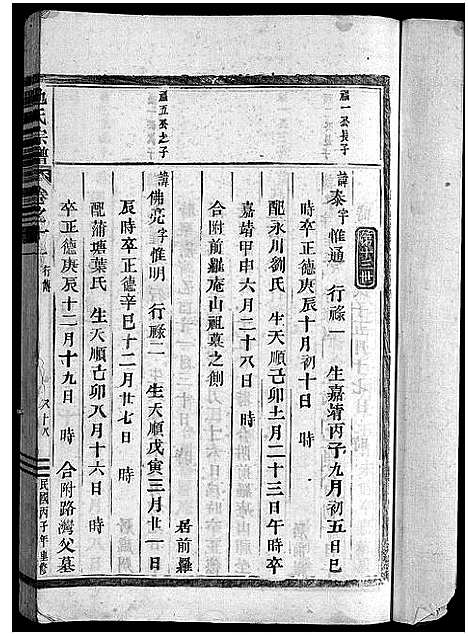 第十三世
福一公長子
諱泰字惟通 行祿一 生嘉靖丙子九月初五日巳
時卒正德庚辰十月初十日 時
配永川劉氏 生天順己卯十一月二十三日午時卒
嘉靖甲申六月二十八日 時
合附前羅庵山祖墓之側 居前羅
福五公之子
諱佛亮字惟明 行祿一 生天順戊寅三月廿一日
辰時卒正德辛巳十二月廿七日 時
配蒲塘葉氏 生天順己卯八月十六日 時
卒正德庚辰十二月十九日 時 合附路灣父墓
氏宗譜 卷之一
民國丙子年重修